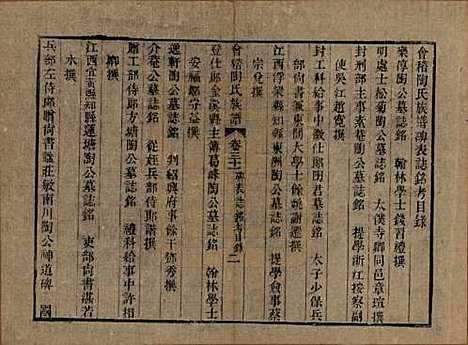 會稽陶氏族譜碑表誌銘考目錄
樂淳陶公墓誌銘　翰林學士錢習禮撰
明處士松菊陶公墓誌銘　太僕寺卿同邑章瑄撰
封刑部主事素菴陶公墓誌銘　提學浙江按察副
使吳江趙寬撰
封工科給事中徵仕郎陶君墓誌銘　太子少保兵
部尚書兼東閣大學士餘姚謝遷撰
江西浮梁縣知縣東洲陶公墓誌銘　提學僉事蔡
宗兗撰
會稽陶氏族譜　卷三十　碑表誌銘考目錄　二
登仕郎金谿縣主簿葛峰陶公墓誌銘　翰林學士
安福鄒守益撰
逐軒陶公墓誌銘　判紹興府事餘干鄧秀撰
介菴陶公墓誌銘　從姪兵部侍郎諧撰
贈工部侍郎方塘陶公墓誌銘　禮科給事中許相
卿撰
江西宜黃縣知縣蓮塘陶公墓誌銘　吏部尚書湛若
水撰
兵部左侍郎贈尚書諡莊敏南川陶公神道碑　國